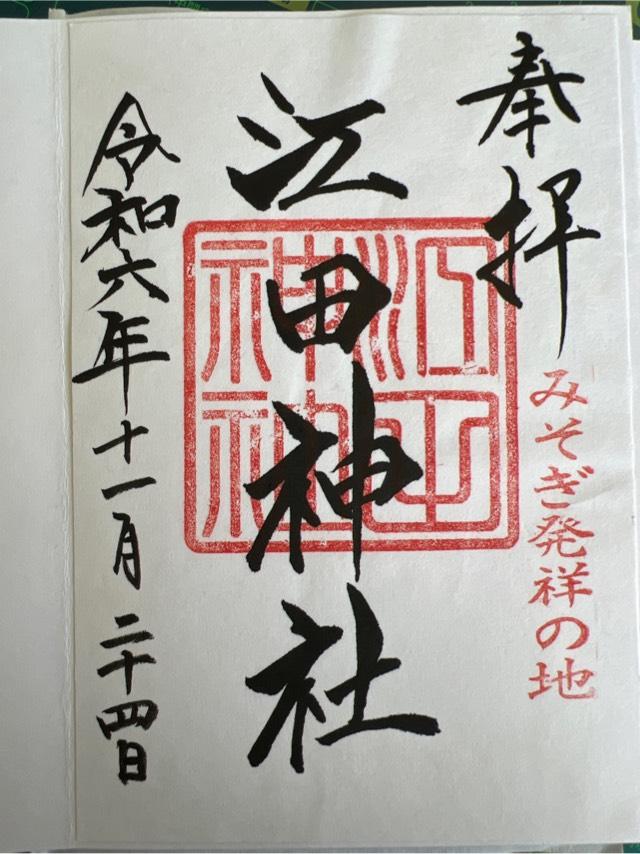 奉拝
みそぎ発祥の地
江田神社
江田神社
令和六年十一月二十四日